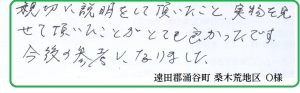 親切に説明をして頂いたこと、実物を見
せて頂いたことがとても良かったです。
今後の参考になりました。
遠田郡涌谷町 桑木荒地区 O様